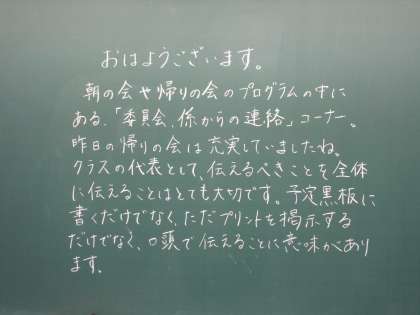 おはようございます。
朝の会や帰りの会のプログラムの中に
ある、「委員会、係からの連絡」コーナー。
昨日の帰りの会は充実していましたね。
クラスの代表として、伝えるべきことを全体
に伝えることはとても大切です。予定黒板に
書くだけでなく、ただプリントを掲示する
だけでなく、口頭で伝えることに意味があり
ます。